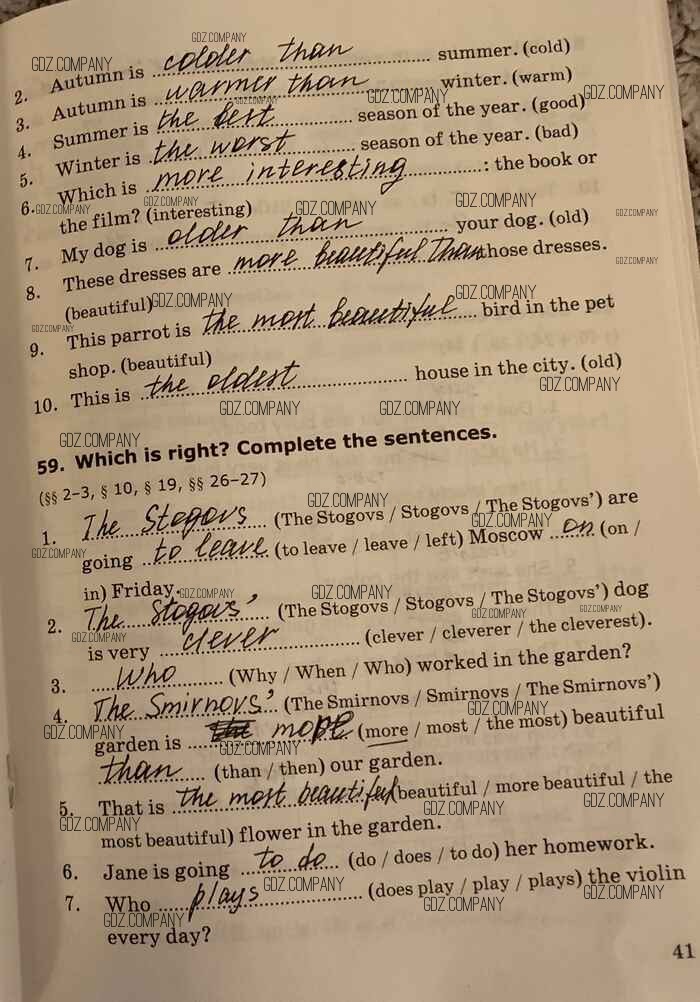 2. Autumn is colder than summer. (cold)
3. Autumn is warmer than winter. (warm)
4. Summer is the best season of the year. (good)
5. Winter is the worst season of the year. (bad)
6. Which is more interesting : the book or
the film? (interesting)
7. My dog is older than your dog. (old)
8. These dresses are more beautiful than those dresses.
(beautiful)
9. This parrot is the most beautiful bird in the pet
shop. (beautiful)
10. This is the oldest house in the city. (old)
59. Which is right? Complete the sentences.
(§§ 2–3, § 10, § 19, §§ 26–27)
1. The Stogovs (The Stogovs / Stogovs / The Stogovs’) are
going to leave (to leave / leave / left) Moscow on (on /
in) Friday.
2. The Stogovs’ (The Stogovs / Stogovs / The Stogovs’) dog
is very clever (clever / cleverer / the cleverest).
3. Who (Why / When / Who) worked in the garden?
4. The Smirnovs’ (The Smirnovs / Smirnovs / The Smirnovs’)
garden is more (more / most / the most) beautiful
than (than / then) our garden.
5. That is the most beautiful (beautiful / more beautiful / the
most beautiful) flower in the garden.
6. Jane is going to do (do / does / to do) her homework.
7. Who plays (does play / play / plays) the violin
every day?
41
GDZ.COMPANY